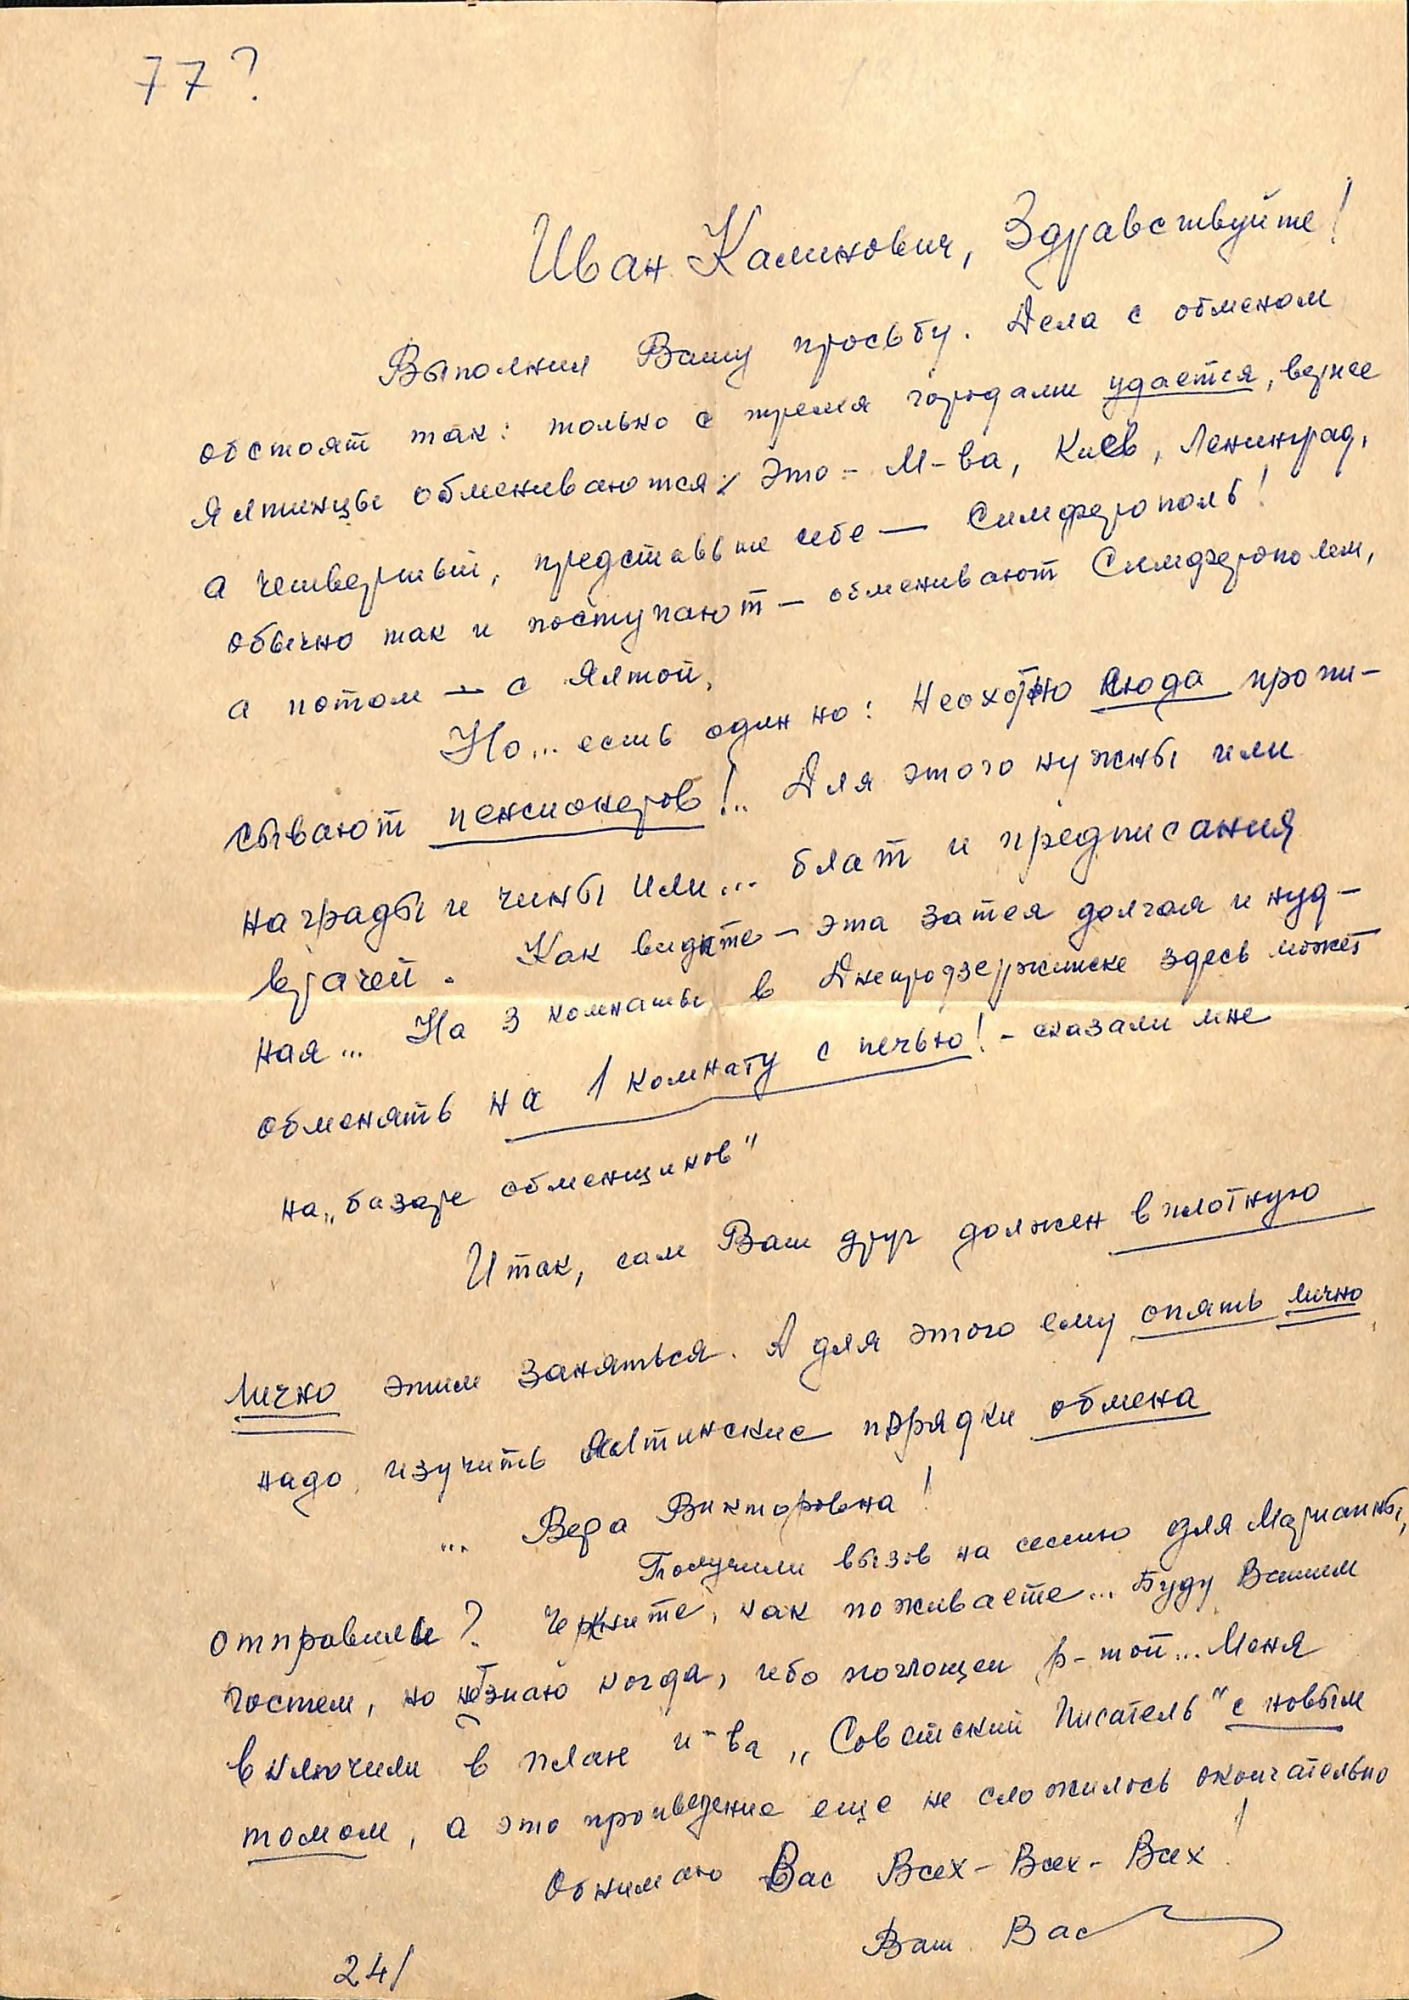 77?
Иван Калинович, Здравствуйте!
Выполнил Вашу просьбу. Дела с обменом
обстоят так: только с тремя городами удается, вернее
Ялтинцы обмениваются: Это - М-ва, Киев, Ленинград,
а четвертый, представьте себе — Симферополь!
Обычно так и поступают — обменивают Симферополем,
а потом — с Ялтой.
Но... есть одно но: Неохотно сюда пропи-
сывают пенсионеров!.. Для этого нужны или
награды и чины или... блат и предписания
врачей. Как видите — эта затея долгая и нуд-
ная... На 3 комнаты в Днепродзержинске здесь может
обменять на 1 комнату с печью! - сказали мне
на „базаре обменщиков"
Итак, сам Ваш друг должен вплотную
лично этим заняться. А для этого ему опять лично
надо изучить Ялтинские порядки обмена
... Вера Викторовна!
Получили вызов на сессию для Марианны,
отправили? Черкните, как поживаете... Буду Вашим
гостем, но не знаю когда, ибо поглощен р-той... Меня
включили в план и-ва „Советский Писатель" с новым
томом, а это произведение еще не сложилось окончательно
Обнимаю Вас Всех - Всех - Всех!
Ваш Вас
24/